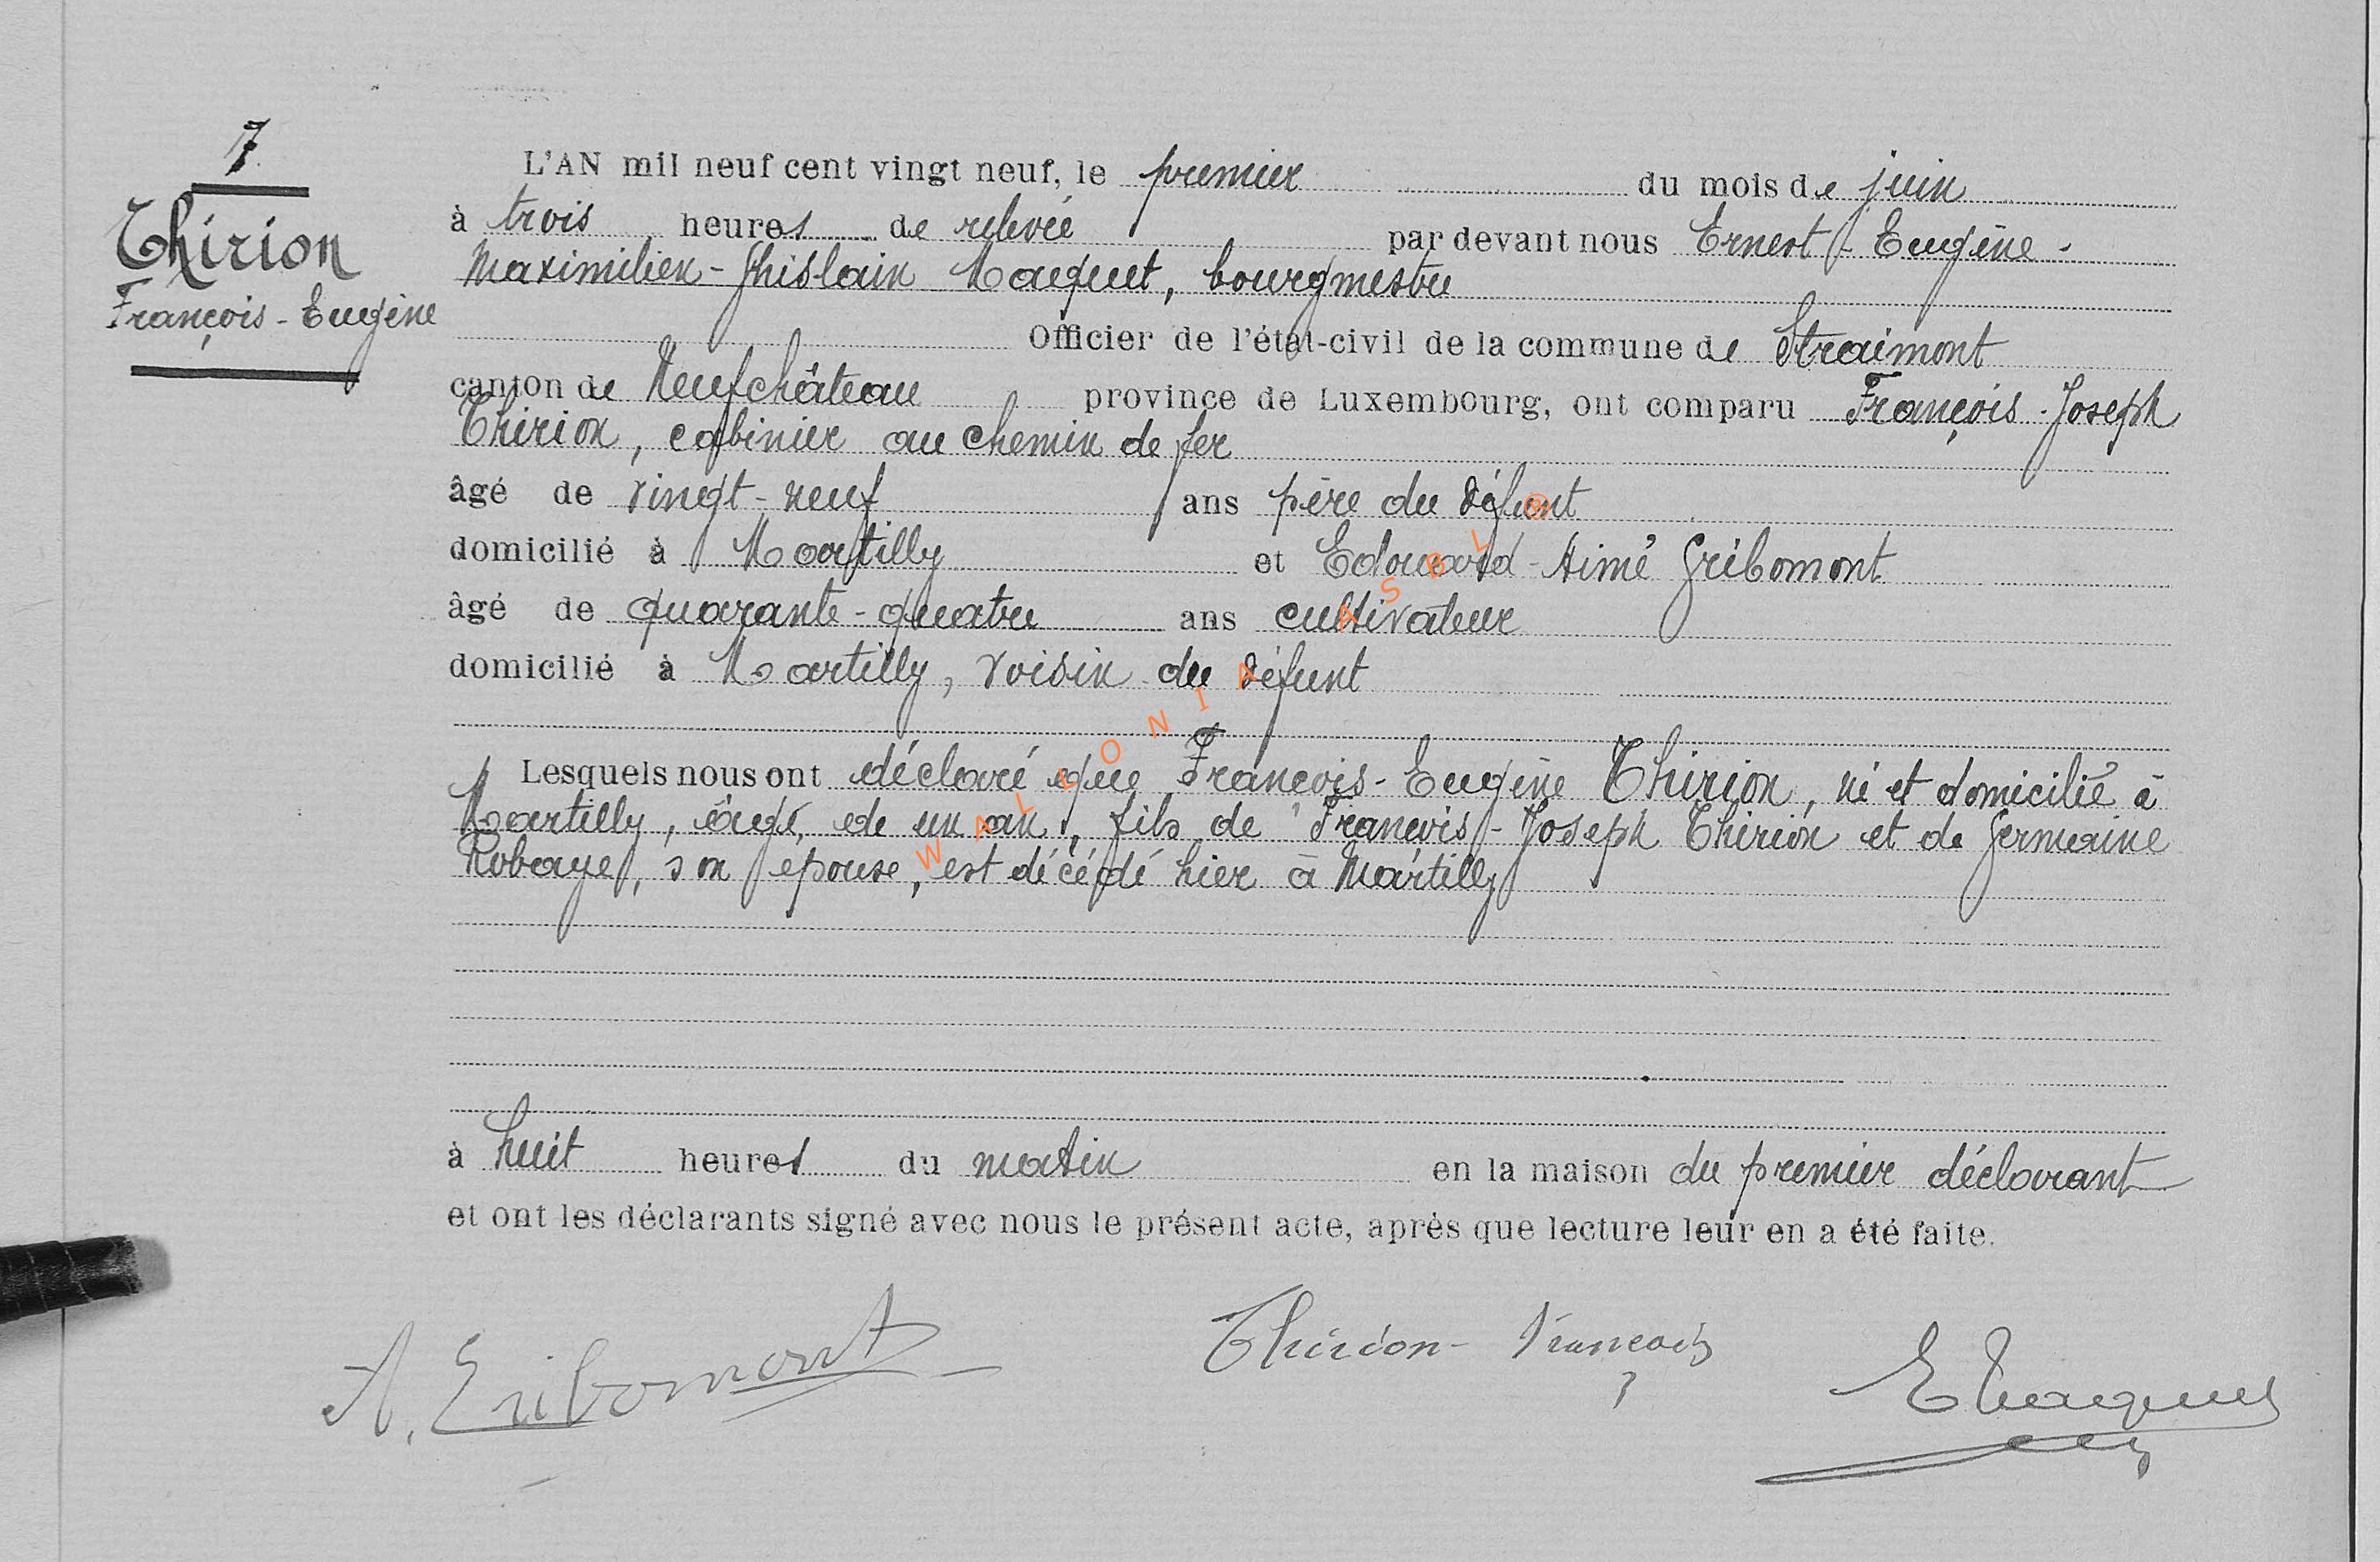 7
Thirion
François-Eugène
L'AN mil neuf cent vingt neuf, le premier du mois de juin
à trois heures de relevée par devant nous Ernest-Eugène-
Maximilien-Ghislain Maquet, bourgmestre
Officier de l'état-civil de la commune de Straimont
canton de Neufchâteau province de Luxembourg, ont comparu François-Joseph
Thirion, cabinier au chemin de fer
âgé de vingt-neuf ans père du défunt
domicilié à Martilly et Edouard-Aimé Gribomont
âgé de quarante-quatre ans cultivateur
domicilié à Martilly, voisin du défunt
Lesquels nous ont déclaré que François-Eugène Thirion, né et domicilié à
Martilly, âgé de un an, fils de François-Joseph Thirion et de Germaine
Robaye, son épouse, est décédé hier à Martilly
à huit heures du matin en la maison du premier déclarant
et ont les déclarants signé avec nous le présent acte, après que lecture leur en a été faite.
A. Gribomont Thirion-François EMaquet
WALLONIA ASBL ®